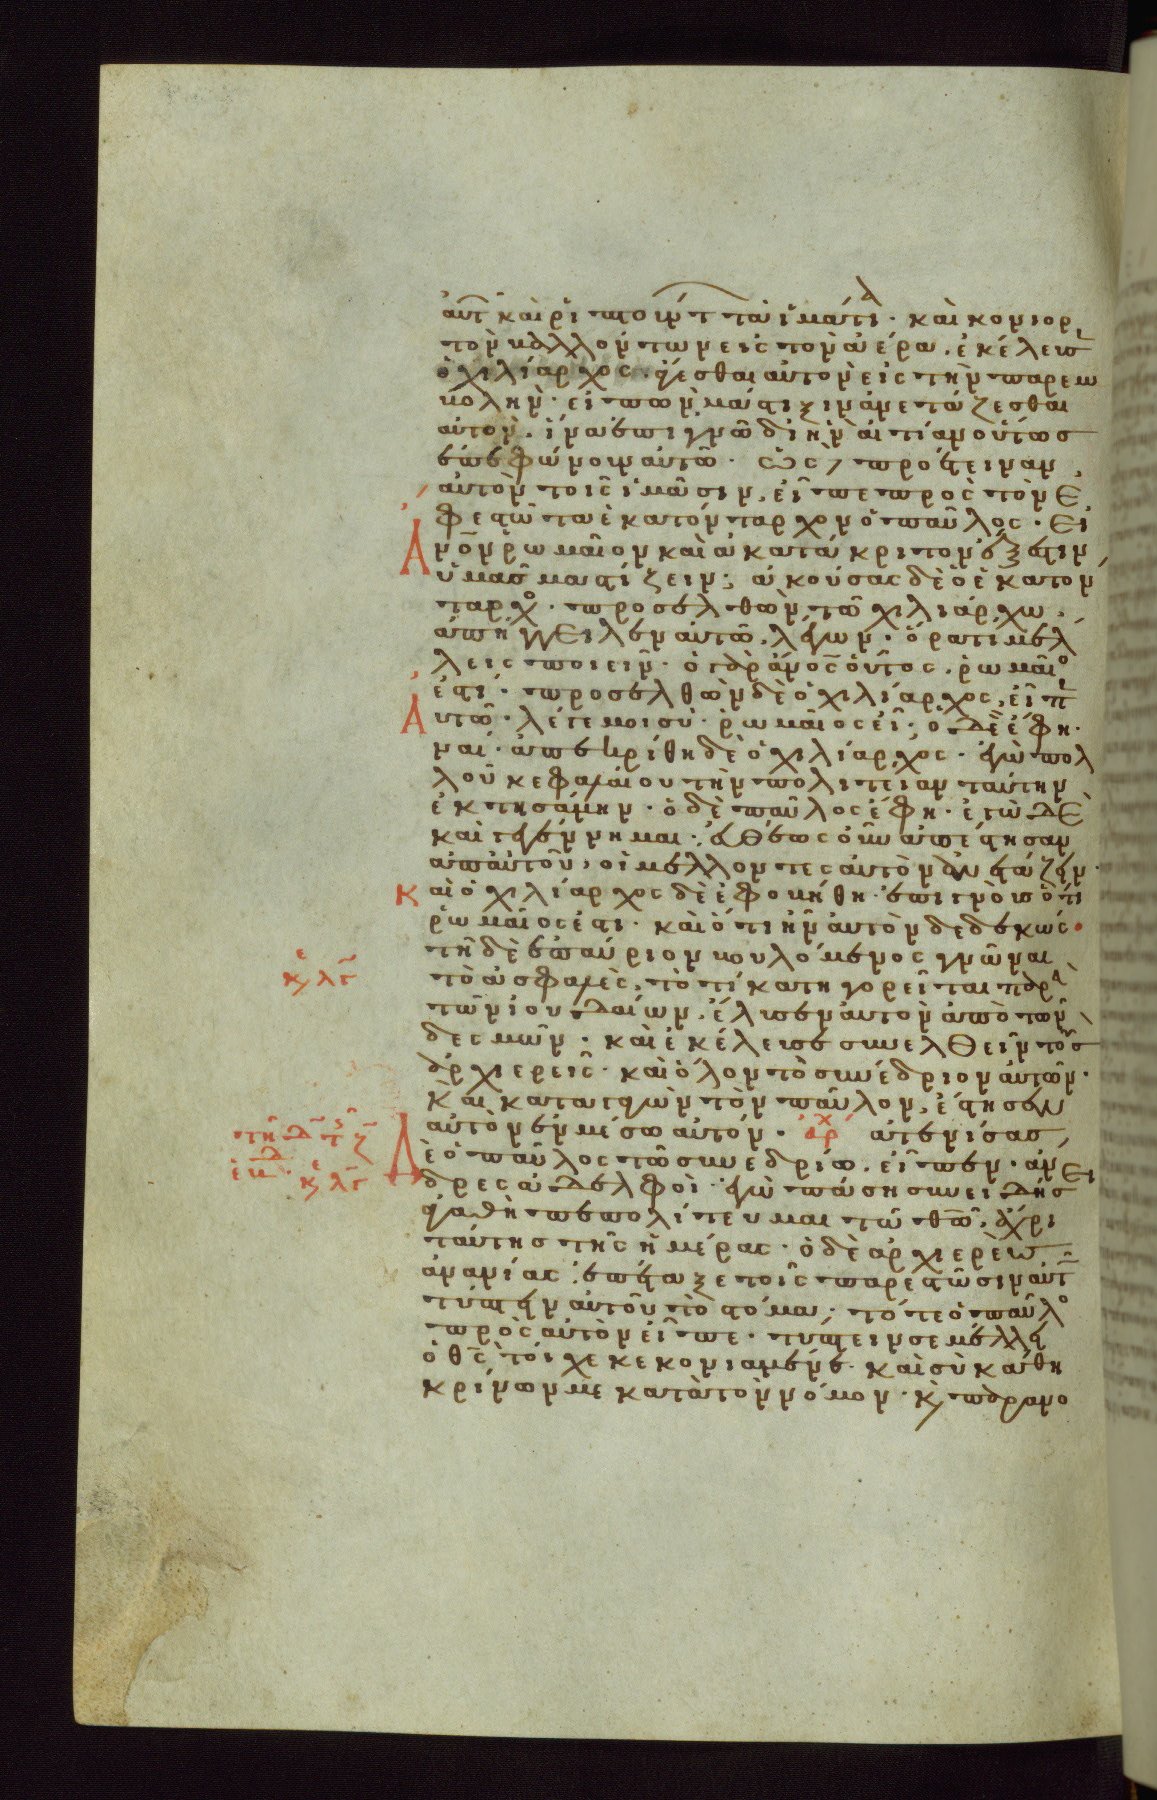 αυτ καὶ ρἱπτούντ τὰ ἱμάτι · καὶ κονιορ
τὸν βαλλόντων εἰς τὸν ἀέρα . ἐκέλευσ
ὁ χιλίαρχος . ἄγεσθαι αὐτὸν εἰς τὴν παρεμ
βολὴν · εἰπὼν μάστιξιν ἀνετάζεσθαι
αὐτὸν . ἵνα ἐπιγνῶ δι ἣν αἰτίαν οὕτως
ἐπεφώνουν αὐτῶ · ὡς προέτειναν
αὐτὸν τοῖς ἱμᾶσιν , εἶπε πρὸς τὸν ἑ
φεστῶτα ἑκατόνταρχον ὁ παῦλος · Εἰ
Ἀνον ρωμαῖον καὶ ἀκατάκριτον ἔξεστιν
ὑμᾶς μαστίζειν ; ἀκούσας δὲ ὁ ἑκατον
ταρχο · προσελθὼν τῶ χιλιάρχω .
ἀπήγγειλεν αὐτῶ . λέγων · ὅρα τί μέλ
λεις ποιεῖν · ὁ γὰρ ἄνος οὗτος . ρωμαῖο
ἐστί · προσελθὼν δὲ ὁ χιλίαρχος , εἶπ
Αυτῶ · λέγε μοι σὺ · ρωμαῖος εἶ ; ὁ δὲ ἔφη ·
ναί · ἀπεκρίθη δὲ ὁ χιλίαρχος · ἐγὼ πολ
λοῦ κεφαλαίου τὴν πολιτείαν ταύτην
ἐκτησάμην · ὁ δὲ παῦλος ἔφη · ἐγὼ δὲ
καὶ γεγέννημαι · εὐθέως οὖν ἀπέστησαν
ἀπ αὐτοῦ , οἱ μέλλοντες αὐτὸν ἀνετάζειν ·
Καὶ ὁ χιλίαρχος δὲ ἐφοβήθη · ἐπιγνοὺς ὅτι
ρωμαῖος ἐστι · καὶ ὅτι ἦν αὐτὸν δεδεκώς ·
τῇ δὲ ἐπαύριον βουλόμενος γνῶναι
τὸ ἀσφαλὲς , τὸ τί κατηγορεῖται παρὰ
τῶν ἰουδαίων . ἔλυσεν αὐτὸν ἀπὸ τῶν
δεσμῶν · καὶ ἐκέλευσε συνελθεῖν τοὺς
ἀρχιερεῖς · καὶ ὅλον τὸ συνέδριον αὐτῶν ·
Καὶ καταγαγὼν τὸν παῦλον , ἔστησεν
αὐτὸν ἐν μέσω αὐτόν · ἀρχ ἀτενίσας
Δὲ ὁ παῦλος τῶ συνεδρίω . εἶπεν · ἄν
δρες ἀδελφοὶ · ἐγὼ πάση συνειδήσει
ἀγαθῆ πεπολίτευμαι τῶ θῶ . ἄχρι
ταύτης τῆς ἡμέρας · ὁ δὲ ἀρχιερὲυς
ἀνανίας . ἐπέταξε τοῖς παρεστῶσιν αὐτ
τύπτειν αὐτοῦ τὸ στόμα · τότε ὁ παῦλο
πρὸς αὐτὸν εἶπε · τύπτειν σε μέλλει
ὁ θς τοίχε κεκονιαμένε · καὶ σὺ κάθη
κρίνων με κατὰ τὸν νόμον · κ παρανο